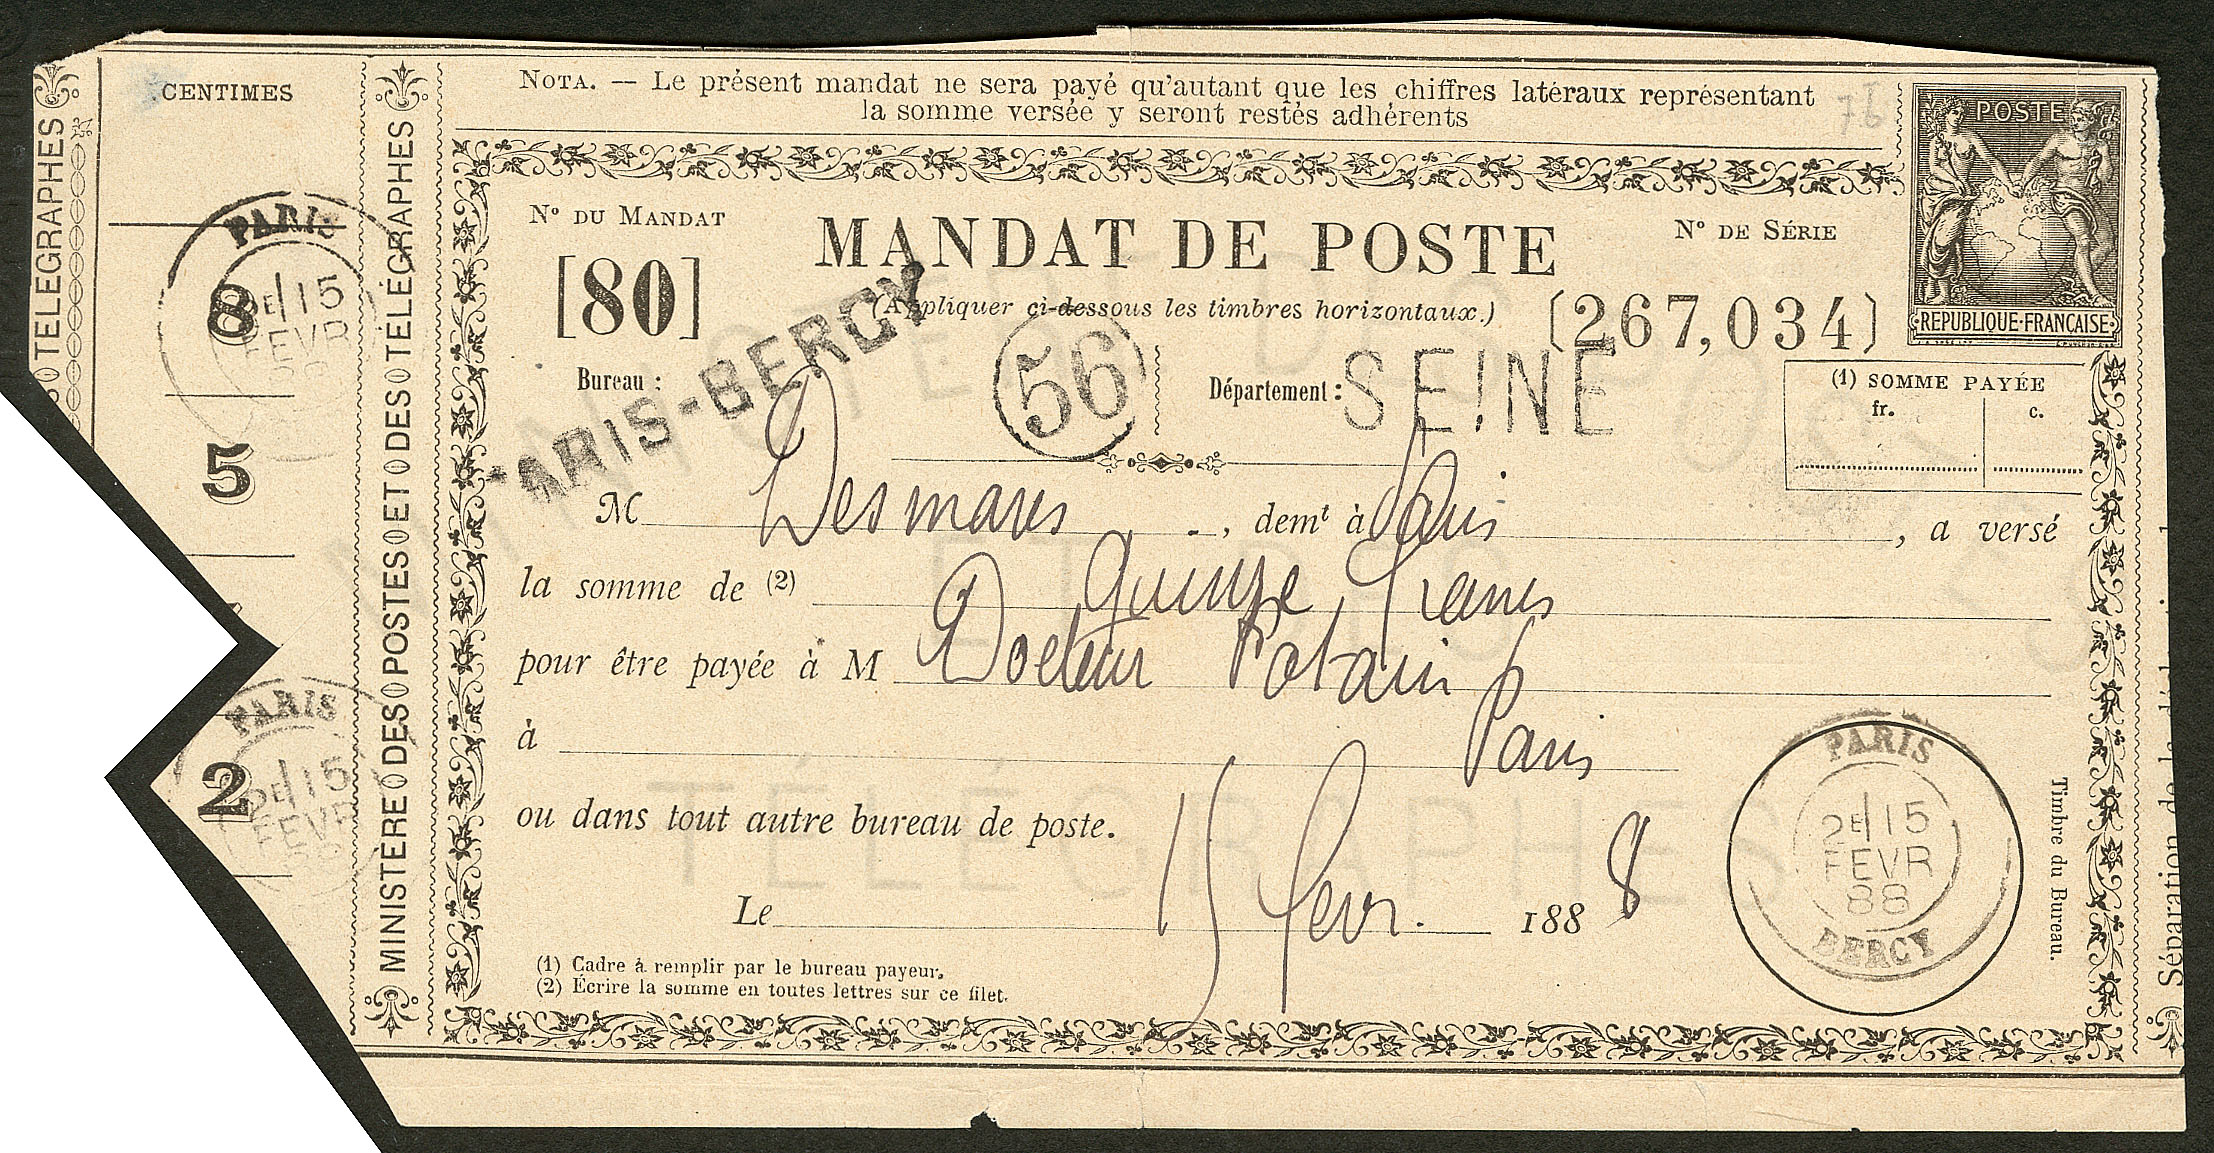 CENTIMES
8
5
2
MINISTERE DES POSTES ET DES TÉLÉGRAPHES
TELEGRAPHES
NOTA. — Le présent mandat ne sera payé qu'autant que les chiffres latéraux représentant
la somme versée y seront restés adhérents
76
POSTE
REPUBLIQUE FRANCAISE
N° DU MANDAT
[80]
MANDAT DE POSTE
(Appliquer ci-dessous les timbres horizontaux.)
N° DE SÉRIE
(267,034)
Bureau :
PARIS-BERCY
56
Département : SEINE
(1) SOMME PAYÉE
fr. c.
M Desmares, demt à Paris, a versé
la somme de (2) Quinze francs
pour être payée à M Docteur Potain
à Paris
ou dans tout autre bureau de poste.
Le 15 fevr. 1888
(1) Cadre à remplir par le bureau payeur.
(2) Écrire la somme en toutes lettres sur ce filet.
PARIS
2E 15
FEVR
88
BERCY
Timbre du Bureau.
Séparation de la
PARIS
2E 15
FEVR
88
PARIS
2E 15
FEVR
88
TÉLÉGRAPHES